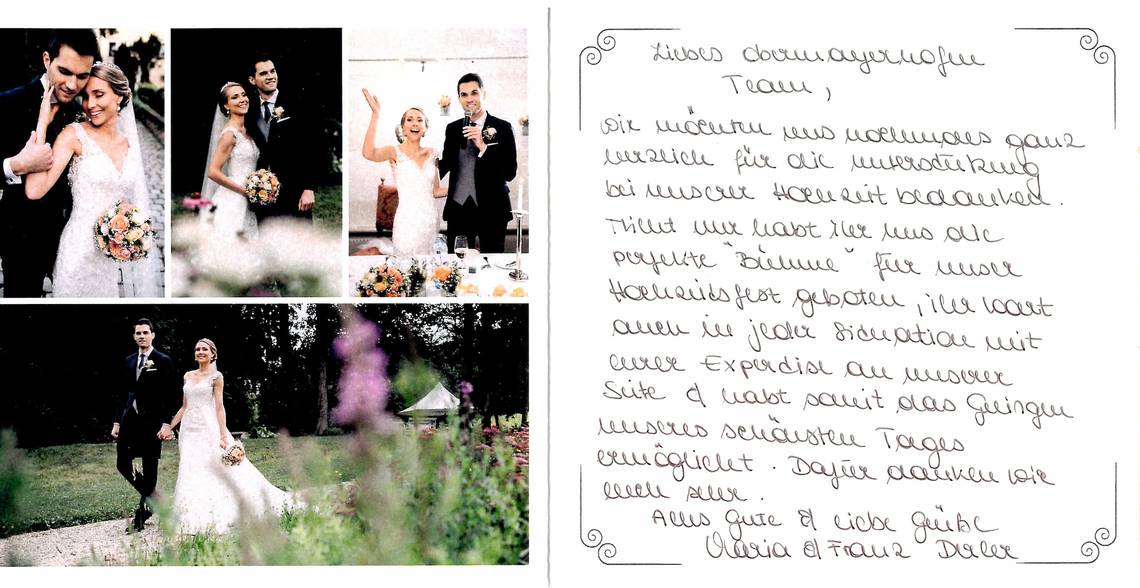 Liebes Obermayerhofen
Team,
wir möchten uns nochmals ganz
herzlich für die Unterstützung
bei unserer Hochzeit bedanken.
Nicht nur habt ihr uns die
perfekte "Bühne" für unser
Hochzeitsfest geboten, ihr wart
auch in jeder Situation mit
eurer Expertise an unserer
Seite & habt somit das Gelingen
unseres schönsten Tages
ermöglicht. Dafür danken wir
euch sehr.
Alles Gute & liebe Grüße
Maria & Franz